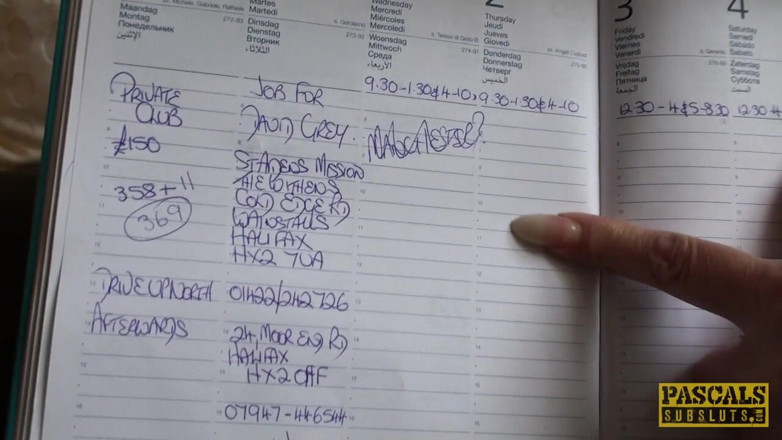 3
4
Maandag
Montag
Понедельник
الإثنين
272-93
Martes
Martedì
Dinsdag
Dienstag
Вторник
الثلاثاء
273-92
Wednesday
Mercredi
Miércoles
Mercoledì
Woensdag
Mittwoch
Среда
الأربعاء
274-91
Thursday
Jeudi
Jueves
Giovedì
Donderdag
Donnerstag
Четверг
الخميس
275-90
Friday
Vendredi
Viernes
Venerdì
Vrijdag
Freitag
Пятница
الجمعة
276-89
Saturday
Samedi
Sábado
Sabato
Zaterdag
Samstag
Суббота
PRIVATE
CLUB
£150
358+11
369
DRIVE UP NORTH
AFTERWARDS
JOB FOR
DAVID GREY
MISSION
COLD EDGE RD
WAINSTALLS
HALIFAX
HX2 7UA
01422/242726
24, MOOR END RD
HALIFAX
HX2
07947-446544
9.30-1.30 & 4-10
MANCHESTER?
9.30-1.30 & 4-10
12.30-4 & 5-8.30
12.30-4
PASCALS
SUBSLUTS.COM